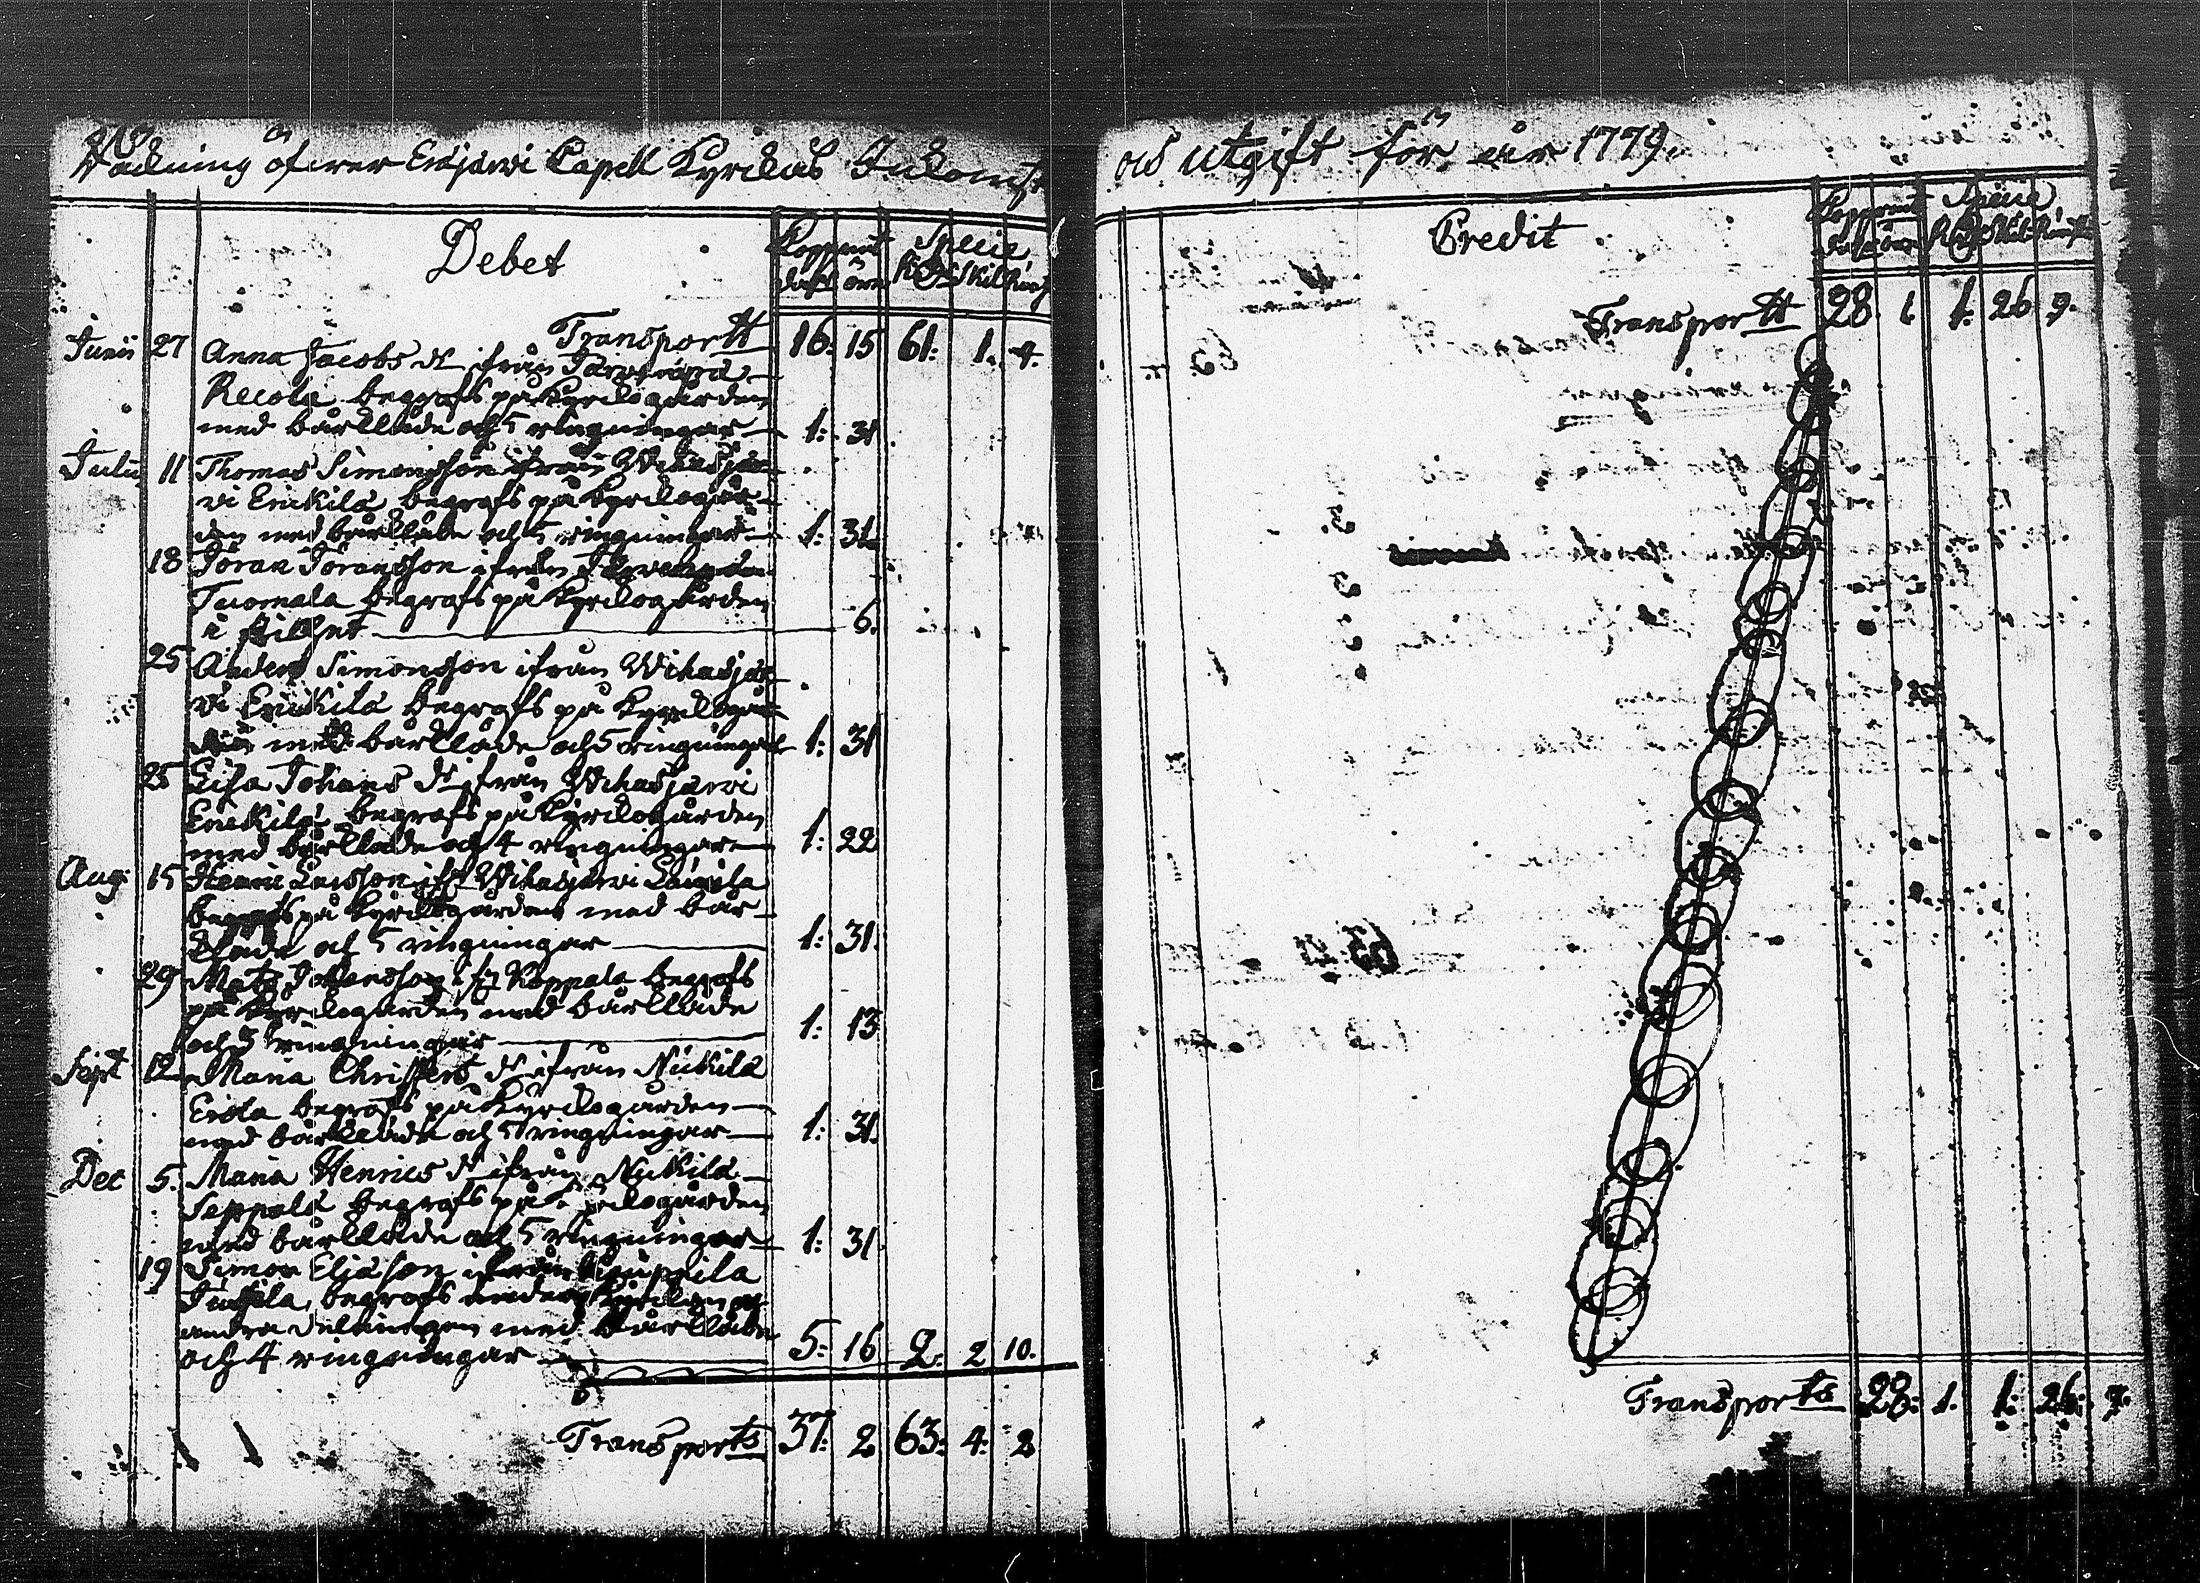 Räckning öfwer Erijärwi Capell Kyrckas Inkomst
Debet
Kopparmt Specie
dalr öre R Skil Runst
Transportt 16: 15 61: 1. 4.
Junii 27 Anna Jacobs dr ifrån
Recola begrafs på Kyrckogården
med bårkläde och 5 ringningar 1: 31
Julii 11 Thomas Simonsson ifrån Wihasjär
wi Erickilä begrafs på Kyrckogår
den med bårkläde och 5 ringningar 1: 31
18 Jöran Jöransson ifrån
Tuomala begrafs på Kyrckogården
i stilhet 6.
25 Anders Simonsson ifrån Wihasjär
wi Erickilä begrafs på Kyrckogår
den med bårkläde och 5 ringningar 1: 31
25 Lisa Johans dr ifrån Wihasjärwi
Erickilä begrafs på Kyrckogården
med bårkläde och 4 ringningar 1: 22
Aug: 15 Henric Larsson ifr Wihasjärwi
begrafs på Kyrckogården med bår
kläde och 5 ringningar 1: 31.
29 Mats Johansson ifr Koppala begrafs
på Kyrckogården med bårkläde
och 3 ringningar 1: 13
Sept 12 Maria Christers dr ifrån Niekilä
Erola begrafs på Kyrckogården
med bårkläde och 5 ringningar 1: 31.
Dec 5. Maria Henrics dr ifrån Niekilä
Seppälä begrafs på Kyrckogården
med bårkläde och 5 ringningar 1: 31
19 Simon Eliasson ifrån
Jussila, begrafs under Kyrckan
andra delningen med bårkläde
och 4 ringningar 5: 16 2: 2 10.
Transports 37: 2 63: 4: 2
och utgift för år 1779.
Credit
Kopparmt Specie
dalr öre R Skil Runst
Transportt 28. 1. 1. 26 9.
Transports 28: 1. 1: 26: 9.